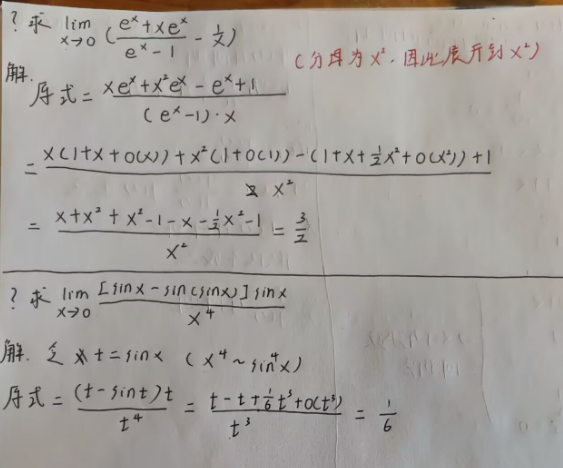 ? 求 lim x→0 (\frac{e^x+xe^x}{e^x-1} - \frac{1}{x})
(分母为x², 因此展开到x²)
解.
原式 = \frac{xe^x+x^2e^x-e^x+1}{(e^x-1)·x}
= \frac{x(1+x+o(x))+x^2(1+o(1))-(1+x+\frac{1}{2}x^2+o(x^2))+1}{x^2}
= \frac{x+x^2+x^2-1-x-\frac{1}{2}x^2-1}{x^2} = \frac{3}{2}
? 求 lim x→0 \frac{[sinx-sin(sinx)]sinx}{x^4}
解. 令 t=sinx (x^4~sin^4x)
原式 = \frac{(t-sint)t}{t^4} = \frac{t-t+\frac{1}{6}t^3+o(t^3)}{t^3} = \frac{1}{6}